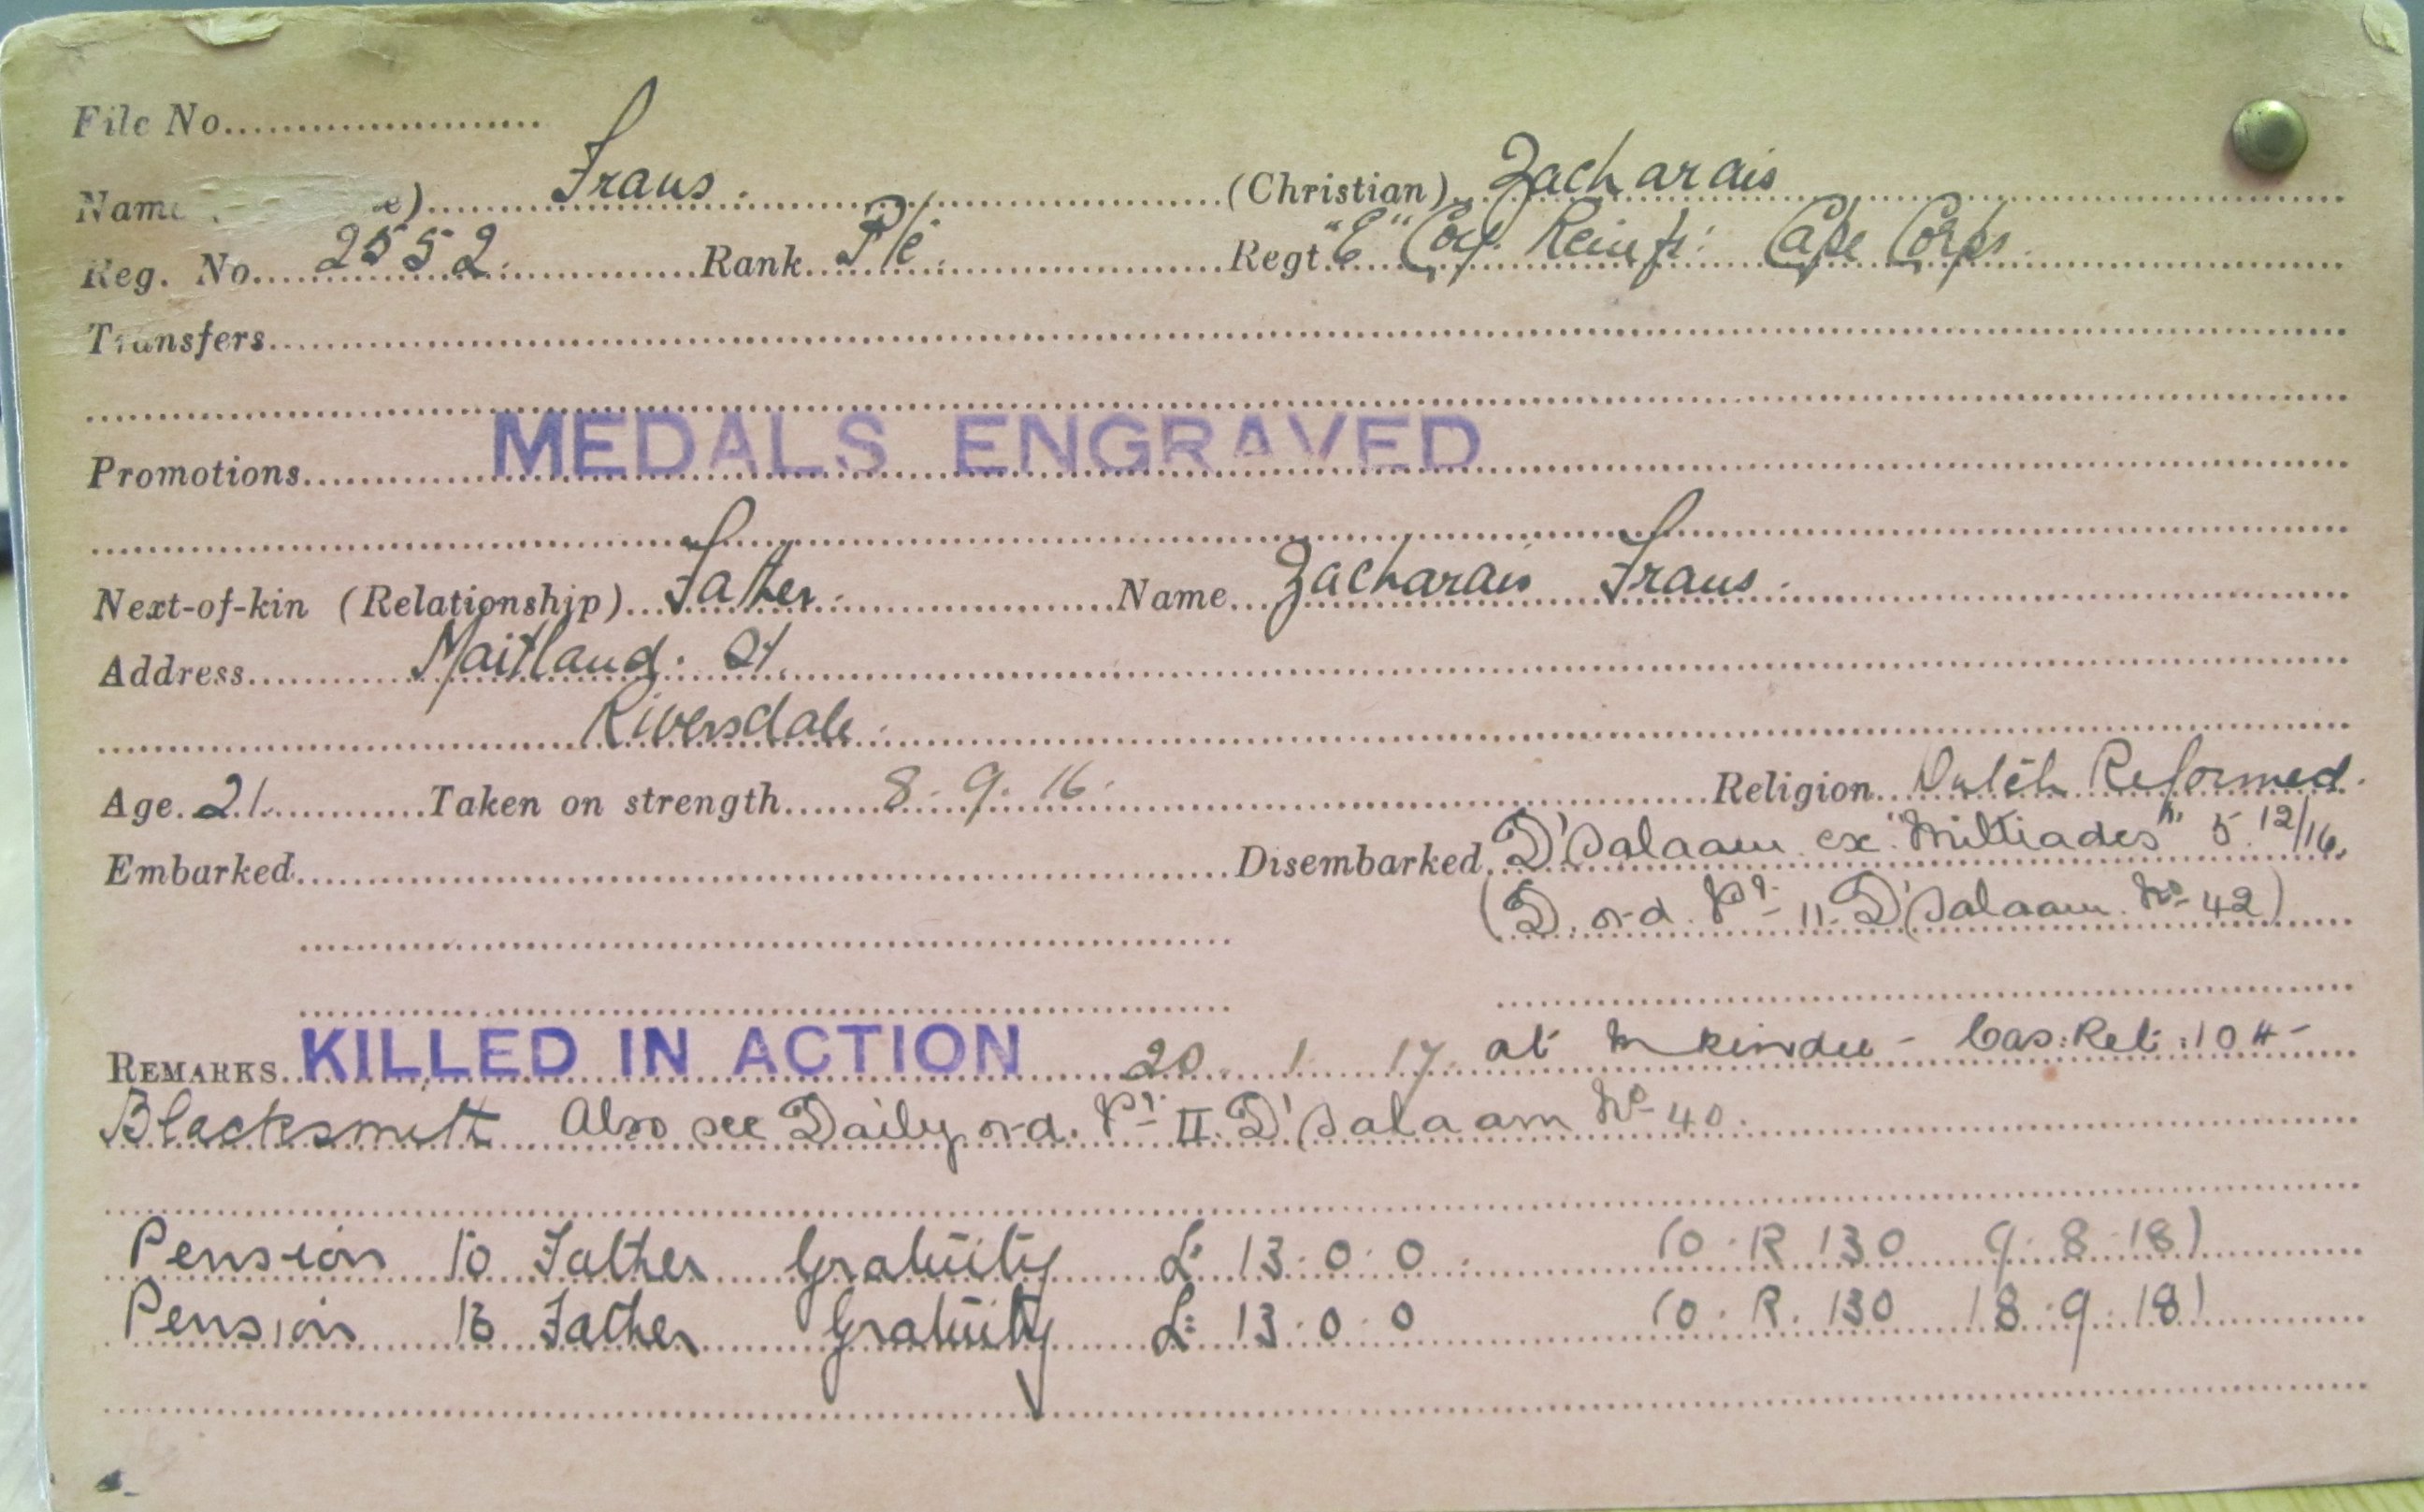 File No.
Name e) Frans. (Christian) Zacharais
Reg. No. 2552. Rank Pte. Regt. "E" Coy. Reinfts: Cape Corps.
Transfers
MEDALS ENGRAVED
Promotions
Next-of-kin (Relationship) Father. Name Zacharais Frans.
Address Maitland. St.
Riversdale.
Age 21. Taken on strength 8. 9. 16. Religion Dutch Reformed.
Embarked Disembarked D'Salaam ex "Miltiades" 5. 12/16.
(D. ord. Pt. 11. D'Salaam. No 42)
REMARKS. KILLED IN ACTION 20. 1. 17. at Mkindu - Cas: Ret: 104 -
Blacksmith Also see Daily ord. Pt. II. D'Salaam No 40.
Pension to Father Gratuity £ 13. 0. 0. (O. R 130 9. 8. 18)
Pension to Father Gratuity £ 13. 0. 0 (O. R. 130 18. 9. 18)